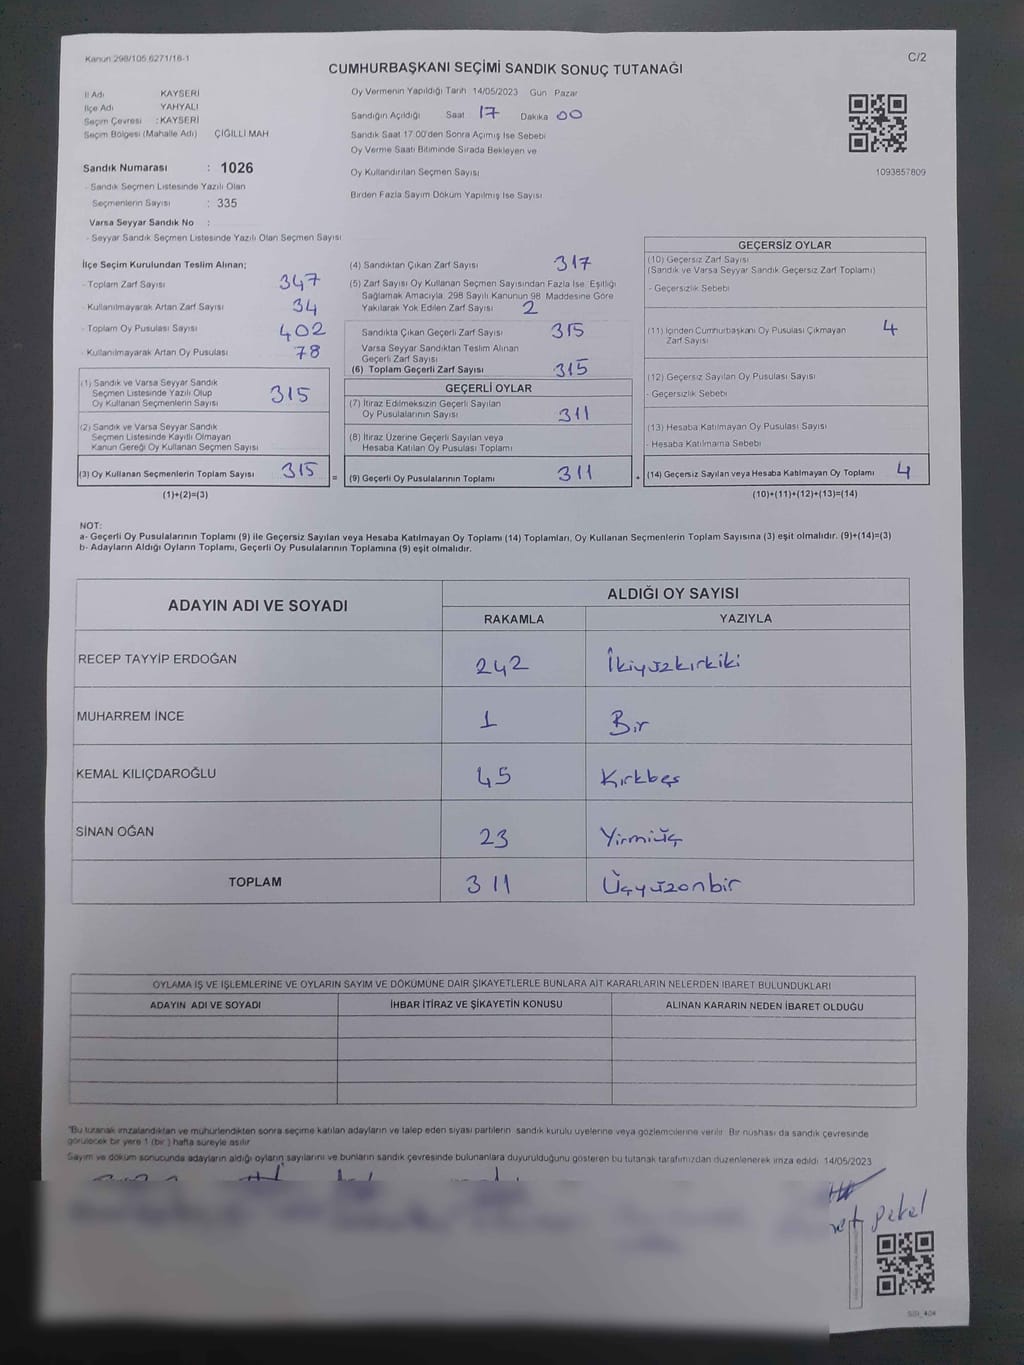 Kanun:298/105,6271/16-1
C/2
CUMHURBAŞKANI SEÇİMİ SANDIK SONUÇ TUTANAĞI
İl Adı KAYSERİ
İlçe Adı YAHYALI
Seçim Çevresi : KAYSERİ
Seçim Bölgesi (Mahalle Adı) ÇİĞİLLİ MAH
Oy Vermenin Yapıldığı Tarih 14/05/2023 Gün Pazar
Sandığın Açıldığı Saat 17 Dakika 00
Sandık Saat 17:00'den Sonra Açımış İse Sebebi
Oy Verme Saati Bitiminde Sırada Bekleyen ve
Oy Kullandırılan Seçmen Sayısı
Birden Fazla Sayım Döküm Yapılmış İse Sayısı
1093857809
Sandık Numarası : 1026
- Sandık Seçmen Listesinde Yazılı Olan
Seçmenlerin Sayısı : 335
Varsa Seyyar Sandık No :
- Seyyar Sandık Seçmen Listesinde Yazılı Olan Seçmen Sayısı
İlçe Seçim Kurulundan Teslim Alınan;
- Toplam Zarf Sayısı 347
- Kullanılmayarak Artan Zarf Sayısı 34
- Toplam Oy Pusulası Sayısı 402
- Kullanılmayarak Artan Oy Pusulası 78
(1) Sandık ve Varsa Seyyar Sandık
Seçmen Listesinde Yazılı Olup
Oy Kullanan Seçmenlerin Sayısı 315
(2) Sandık ve Varsa Seyyar Sandık
Seçmen Listesinde Kayıtlı Olmayan
Kanun Gereği Oy Kullanan Seçmen Sayısı
(3) Oy Kullanan Seçmenlerin Toplam Sayısı 315
(1)+(2)=(3)
(4) Sandıktan Çıkan Zarf Sayısı 317
(5) Zarf Sayısı Oy Kullanan Seçmen Sayısından Fazla İse, Eşitliği
Sağlamak Amacıyla, 298 Sayılı Kanunun 98. Maddesine Göre
Yakılarak Yok Edilen Zarf Sayısı 2
Sandıkta Çıkan Geçerli Zarf Sayısı 315
Varsa Seyyar Sandıktan Teslim Alınan
Geçerli Zarf Sayısı
(6) Toplam Geçerli Zarf Sayısı 315
GEÇERLİ OYLAR
(7) İtiraz Edilmeksizin Geçerli Sayılan
Oy Pusulalarının Sayısı 311
(8) İtiraz Üzerine Geçerli Sayılan veya
Hesaba Katılan Oy Pusulası Toplamı
= (9) Geçerli Oy Pusulalarının Toplamı 311
GEÇERSİZ OYLAR
(10) Geçersiz Zarf Sayısı
(Sandık ve Varsa Seyyar Sandık Geçersiz Zarf Toplamı)
- Geçersizlik Sebebi
(11) İçinden Cumhurbaşkanı Oy Pusulası Çıkmayan
Zarf Sayısı 4
(12) Geçersiz Sayılan Oy Pusulası Sayısı
- Geçersizlik Sebebi
(13) Hesaba Katılmayan Oy Pusulası Sayısı
- Hesaba Katılmama Sebebi
(14) Geçersiz Sayılan veya Hesaba Katılmayan Oy Toplamı 4
(10)+(11)+(12)+(13)=(14)
NOT:
a- Geçerli Oy Pusulalarının Toplamı (9) ile Geçersiz Sayılan veya Hesaba Katılmayan Oy Toplamı (14) Toplamları, Oy Kullanan Seçmenlerin Toplam Sayısına (3) eşit olmalıdır. (9)+(14)=(3)
b- Adayların Aldığı Oyların Toplamı, Geçerli Oy Pusulalarının Toplamına (9) eşit olmalıdır.
ADAYIN ADI VE SOYADI ALDIĞI OY SAYISI
RAKAMLA YAZIYLA
RECEP TAYYİP ERDOĞAN 242 İkiyüzkırkiki
MUHARREM İNCE 1 Bir
KEMAL KILIÇDAROĞLU 45 Kırkbeş
SİNAN OĞAN 23 Yirmiüç
TOPLAM 311 Üçyüzonbir
OYLAMA İŞ VE İŞLEMLERİNE VE OYLARIN SAYIM VE DÖKÜMÜNE DAİR ŞİKAYETLERLE BUNLARA AİT KARARLARIN NELERDEN İBARET BULUNDUKLARI
ADAYIN ADI VE SOYADI İHBAR İTİRAZ VE ŞİKAYETİN KONUSU ALINAN KARARIN NEDEN İBARET OLDUĞU
"Bu tutanak imzalandıktan ve mühürlendikten sonra seçime katılan adayların ve talep eden siyasi partilerin sandık kurulu üyelerine veya gözlemcilerine verilir. Bir nüshası da sandık çevresinde
görülecek bir yere 1 (bir ) hafta süreyle asılır.
Sayım ve döküm sonucunda adayların aldığı oyların sayılarını ve bunların sandık çevresinde bulunanlara duyurulduğunu gösteren bu tutanak tarafımızdan düzenlenerek imza edildi. 14/05/2023